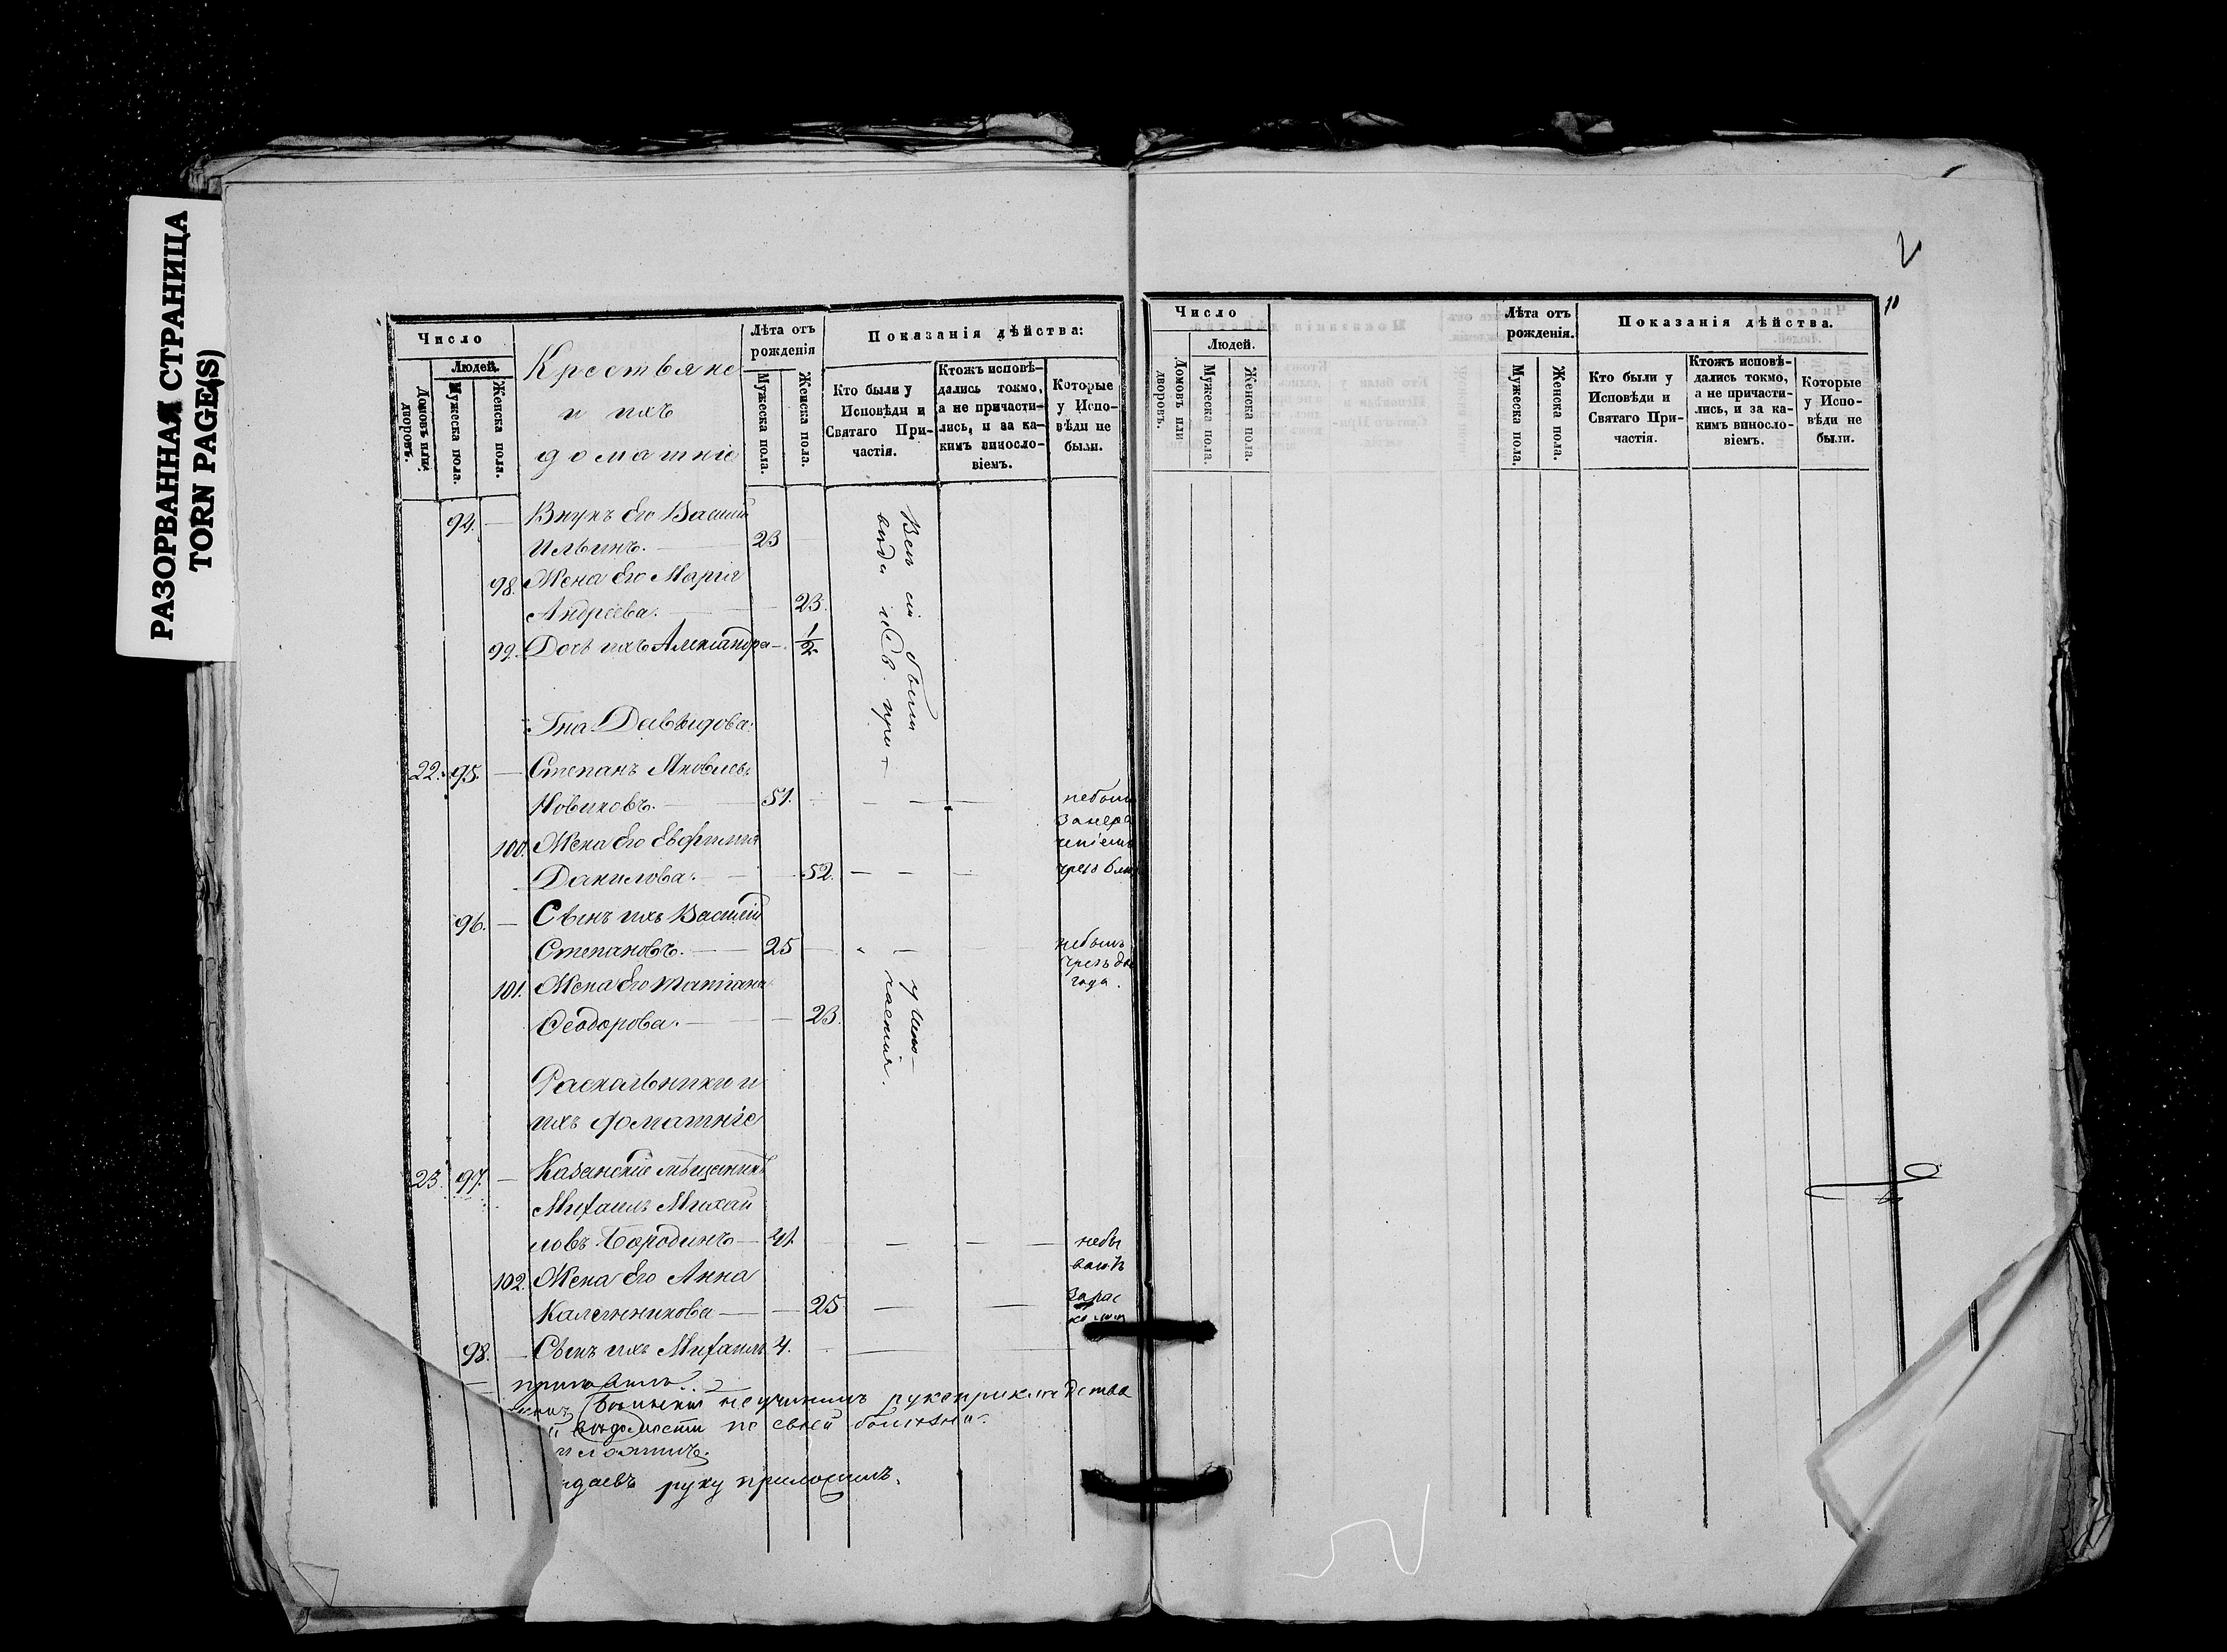 РАЗОРВАННАЯ СТРАНИЦА
TORN PAGE(S)
Число
Людей.
Домовъ или дворовъ.
Мужеска пола.
Женска пола.
Крестьяне
и ихъ
домашніе
Лѣта отъ рожденія
Мужеска пола.
Женска пола.
Показанія дѣйства:
Кто были у Исповѣди и Святаго Причастія.
Ктожъ исповѣдались токмо, а не причастились, и за какимъ винословіемъ.
Которые у Исповѣди не были.
94. — Внукъ Его Василій
Ильинъ. — 23
98. Жена Его Марія
Андреева. — 23.
99. Дочь ихъ Александра — 1/2
Всѣ сіи были у Испо-
вѣди и Св. при-
частія.
Гна Давыдова:
22. 95. — Степанъ Яковлевъ
Новиковъ. — 51. — — —
100. Жена Его Евфимія
Данилова. — 52. — — —
96. — Сынъ ихъ Василій
Степановъ. — 25
101. Жена Его Татіана
Ѳеодорова. — 23.
года.
Раскольники и
ихъ домашніе
23. 97. — Казанскіе мѣщанинъ
Михаилъ Михай
ловъ Бородинъ — 41. — — —
небы
102. Жена Его Анна
Калинникова — 25 — —
зарас
98. — Сынъ ихъ Михаилъ 4.
неучинилъ рукоприкладства
вѣдомости по своей болѣзни
руку приложилъ.
Число
Людей.
Домовъ или дворовъ.
Мужеска пола.
Женска пола.
Лѣта отъ рожденія.
Мужеска пола.
Женска пола.
Показанія дѣйства.
Кто были у Исповѣди и Святаго Причастія.
Ктожъ исповѣдались токмо, а не причастились, и за какимъ винословіемъ.
Которые у Исповѣди не были.